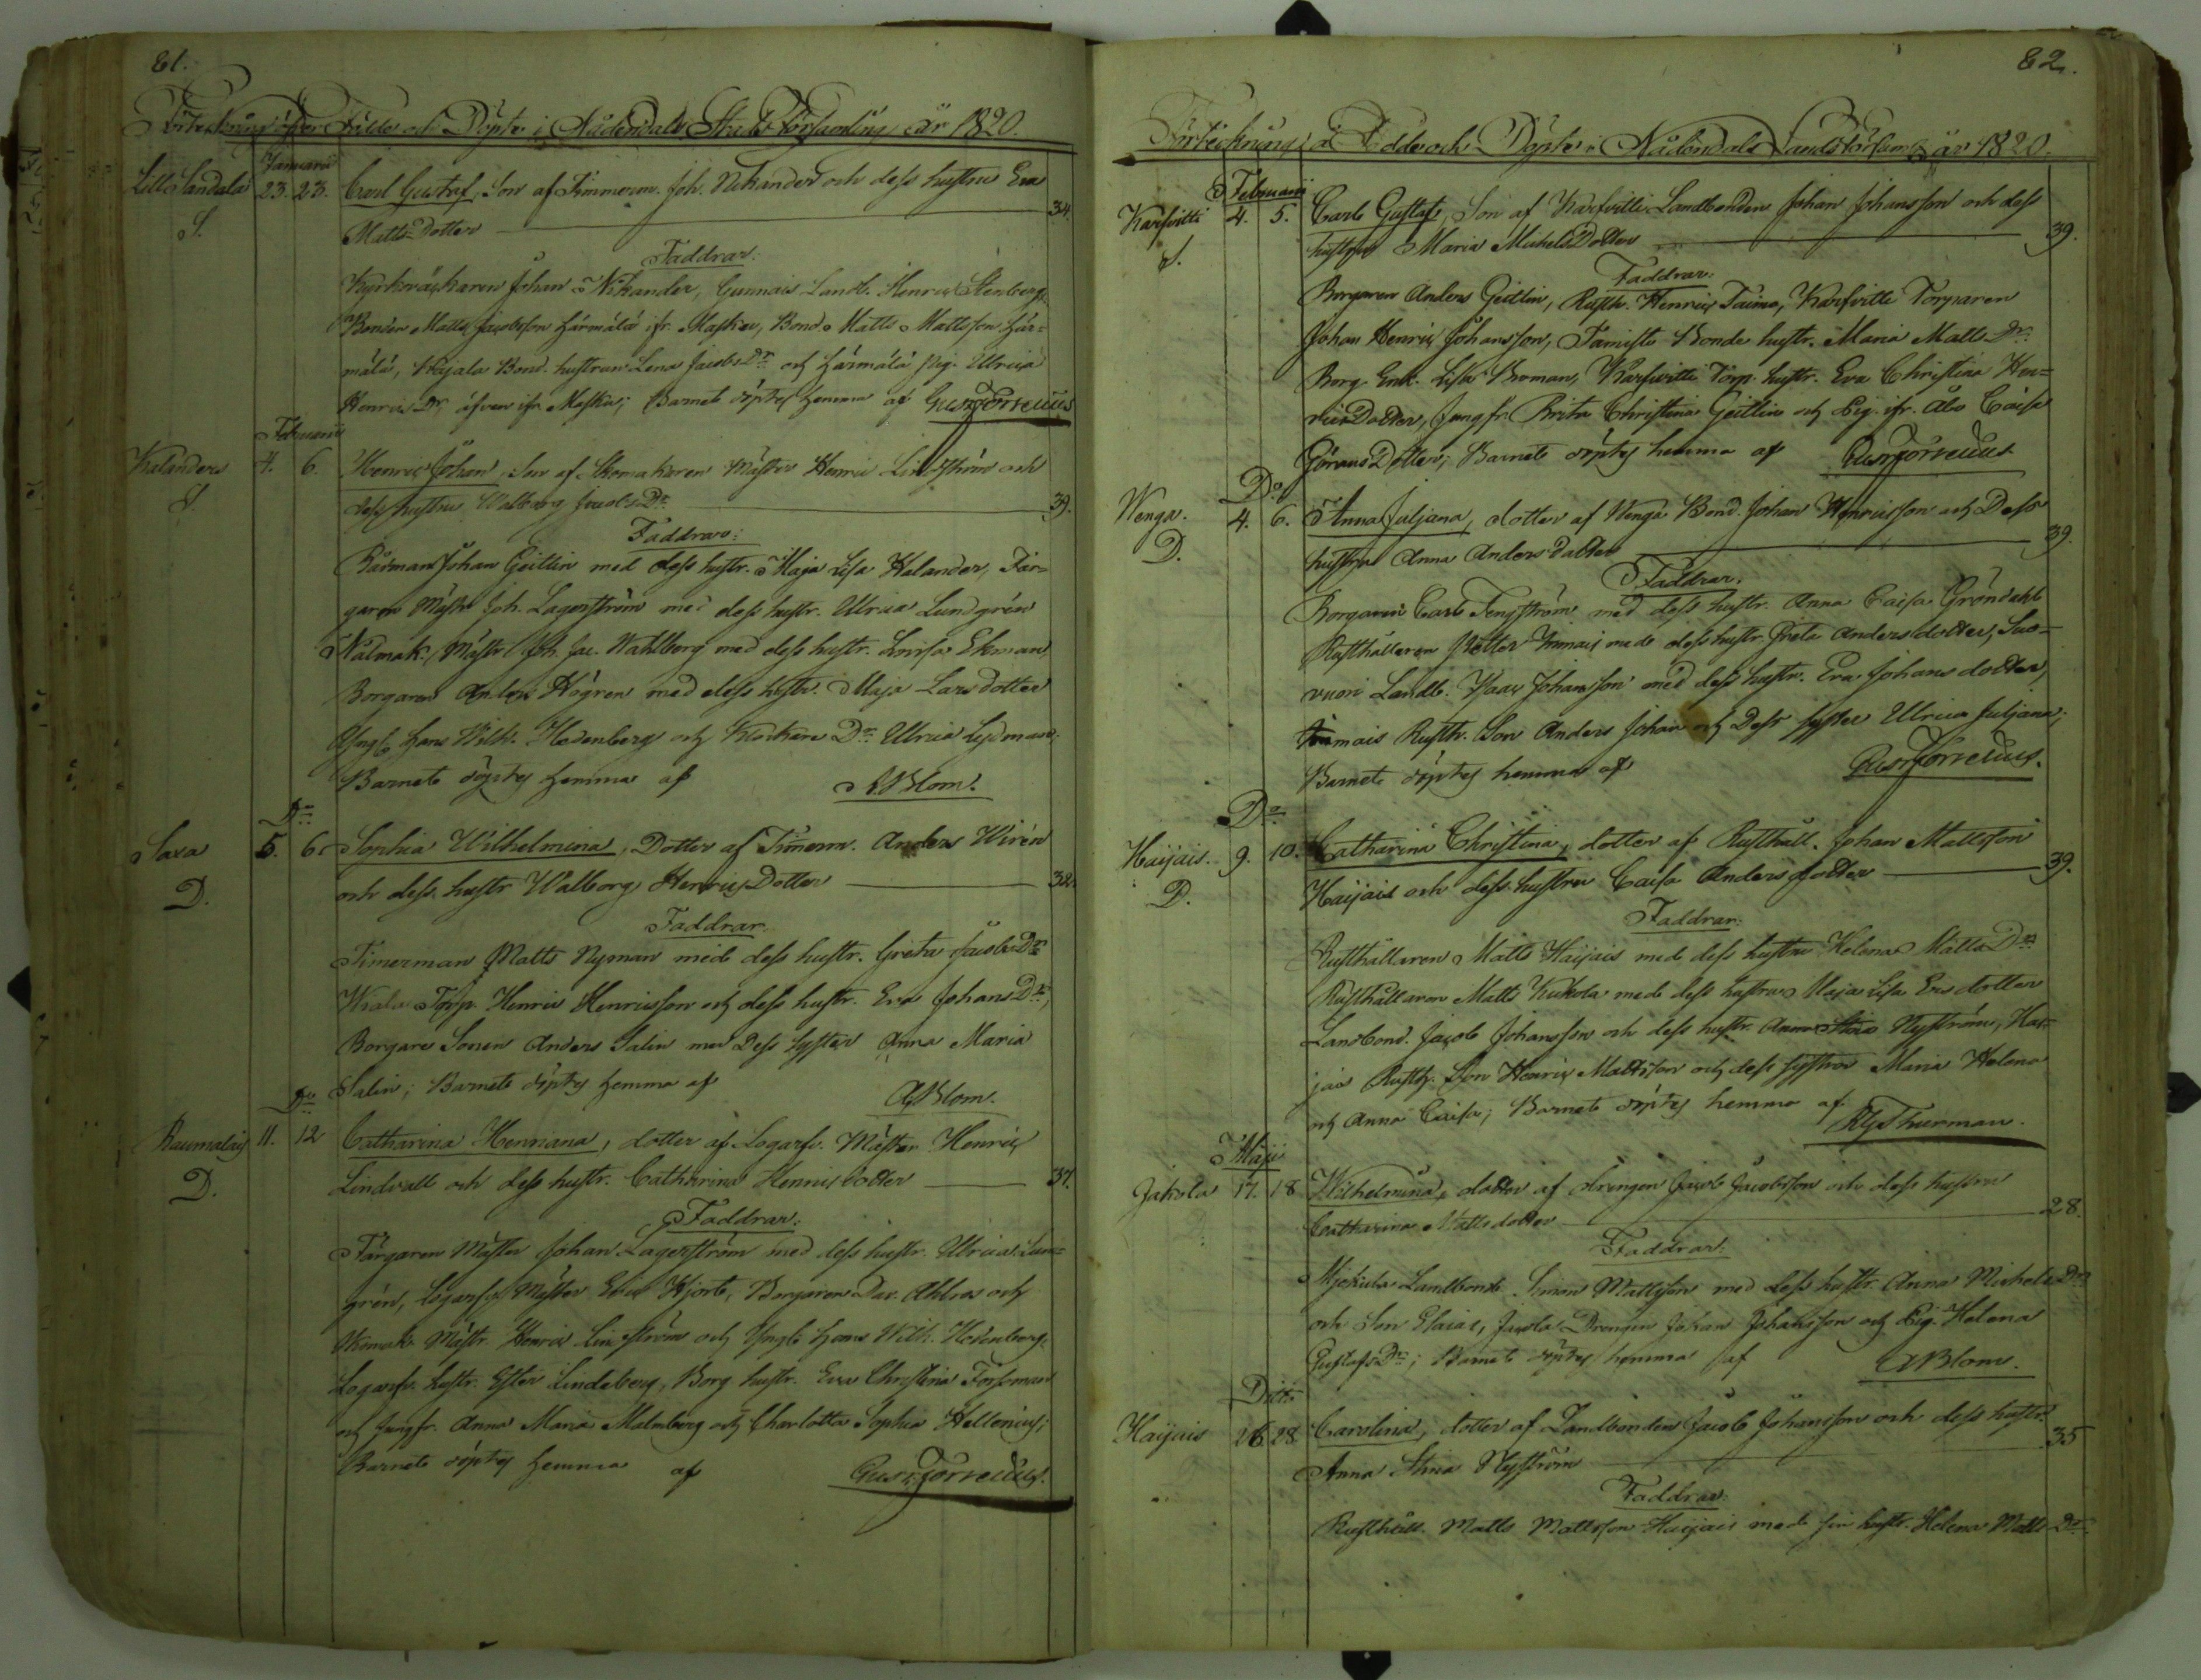 81.
Förteckning öfver Födde och Döpte i Nådendals Stads Församling år 1820.
Januarii
Lilla Sandala 23. 23. Carl Gustaf, Son af Timmerm. Joh. Nikander och dess hustru Eva
S. Matts Dotter 34.
Faddrar:
Kyrkoväktaren Johan Nikander, Gunnais Landb. Henric Stenberg,
Bonden Matts Jacobsson Härmälä ifr. Masku, Bond. Matts Mattsson Här=
mälä, Kajala Bond. hustrun Lena Jacobs Dr och Härmälä Pig. Ulrica
Henrics Dr, äfven ifr. Masku; Barnet döptes hemma af Gust. Forselius
Februarii
Kalanders 4. 6. Henric Johan, Son af Skomakaren Mäster Henric Lindström och
S. dess hustru Walborg Jacobs Dr 39.
Faddrar:
Rådman Johan Geitlin med dess hustr. Maja Lisa Kalander, Fär=
garen Mäst. Joh. Lagerström med dess hustr. Ulrica Lundgrén
Nålmak. Mästr Joh. Jac. Wahlberg med dess hustr. Lovisa Ekman,
Borgaren Anders Högren med dess hustr. Maja Larsdotter
Yngl. Hans Wilh. Hedenberg och Klockare Dr Ulrica Lydman;
Barnet döptes hemma af A Blom.
Do
Saxa 5. 6. Sophia Wilhelmina, Dotter af Timerm. Anders Wirén
D. och dess hustr Walborg Henrics Dotter 32.
Faddrar.
Timerman Matts Nyman med dess hustr. Greta Jacobs Dr
Torp. Henric Henricsson och dess hustr. Eva Johans Dr,
Borgare Sonen Anders Salin med Dess Syster Anna Maria
Salin; Barnet döptes hemma af A Blom.
Do
Raumalais 11. 12 Catharina Henriana, dotter af Logarfv. Mäster Henric
D. Lindvall och dess hustr. Catharina Henricsdotter 37.
Faddrar:
Färgaren Mäster Johan Lagerström med dess hustr. Ulrica Lun=
grén, Logarfv. Mäster Eric Hjort, Borgaren Dav. Ahlros och
Skomak. Mästr. Henric Lindström och Yngl. Hans Wilh. Hedenberg,
Logarfv. hustr. Ester Lindeberg, Borg hustr. Eva Christina Forsman
och Jungfr. Anna Maria Malmberg och Charlotta Sophia Hellenius;
Barnet döptes hemma af Gust. Forselius.
82.
Förteckning å Födde och Döpte i Nådendals Landsförsaml. år 1820.
Februarii
Karfvitti 4. 5. Carl Gustaf, Son af Karfvitti Landbonden Johan Johansson och dess
S. hustru Maria Michels Dotter 39.
Faddrar:
Borgaren Anders Geitlin, Rusth. Henric Taimo, Karfvitti Torparen
Johan Henric Johansson, Tamisto Bonde hustr. Maria Matts Dr
Borg. Enk. Lisa Broman, Karfvitti Torp. hustr. Eva Christina Hen=
rics Dotter, Jungfr. Brita Christina Geitlin och Pig. ifr. Åbo Caisa
Görans Dotter; Barnet döptes hemma af Gust. Forselius
Do
Wenga. 4. 6. Anna Juljana, dotter af Wenga Bond. Johan Henricsson och Dess
D. hustru Anna Andersdotter 39.
Faddrar.
Borgaren Carl Tengström med dess hustr. Anna Caisa Gröndahl
Rusthållaren Petter Immais med dess hustr. Greta Andersdotter, Suo=
vuori Landb. Isaac Johansson med dess hustr. Eva Johansdotter,
Immais Rusth. Son Anders Johan och Dess syster Ulrica Juljana;
Barnet döptes hemma af Gust Forselius.
Do
Haijais. 9. 10. Catharina Christina, dotter af Rusthåll. Johan Mattsson
D. Haijais och dess hustru Caisa Anders dotter 39.
Faddrar:
Rusthållaren Matts Haijais med dess hustru Helena Matts Dr
Rusthållaren Matts Kukola med dess hustru Maja Lisa Ersdotter
Landbond. Jacob Johansson och dess hustr. Anna Stina Nyström, Hai=
jais Rusth. Son Henric Mattsson och dess systrar Maria Helena
och Anna Caisa; Barnet döptes hemma af Thurman.
Maji
Jakola 17. 18 Wilhelmina, dotter af drengen Jacob Jacobsson och dess hustru
Catharina Mattsdotter 28.
Faddrar:
Landbond. Simon Mattsson med dess hustr. Anna Michels Dr
och Son Esaias, Jakola Drengen Johan Johansson och Pig. Helena
Gustafs Dr; Barnet döptes hemma af A Blom.
Ditto
Haijais 26 28 Carolina, dotter af Landbonden Jacob Johansson och dess hustr.
Anna Stina Nyström 35
Faddrar:
Rusthåll. Matts Mattsson Haijais med sin hustr. Helena Matts Dr